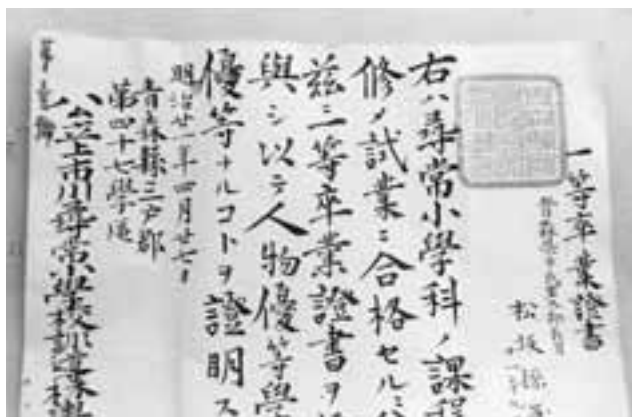 一等卒業證書
松坂
右ハ尋常小學科ノ課程
修ノ試業ニ合格セル
茲ニ一等卒業證書ヲ
與シ以テ人物優等學
優等ナルコトヲ證明ス
明治廿一年四月廿七日
青森縣三戸郡
第四十七學區
公立上市川尋常小學校訓導
第壱號